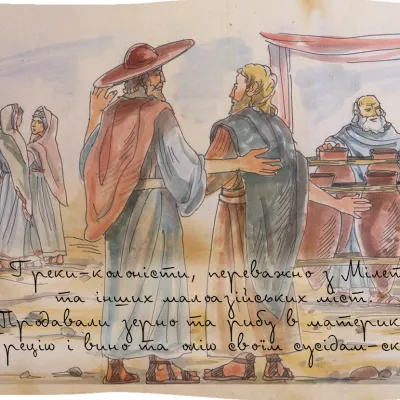 Греки-колоністи, переважно з Мілет
та інших малоазійських міст.
Продавали зерно та рибу в материк
рецію і вино та олію своїм сусідам-ск